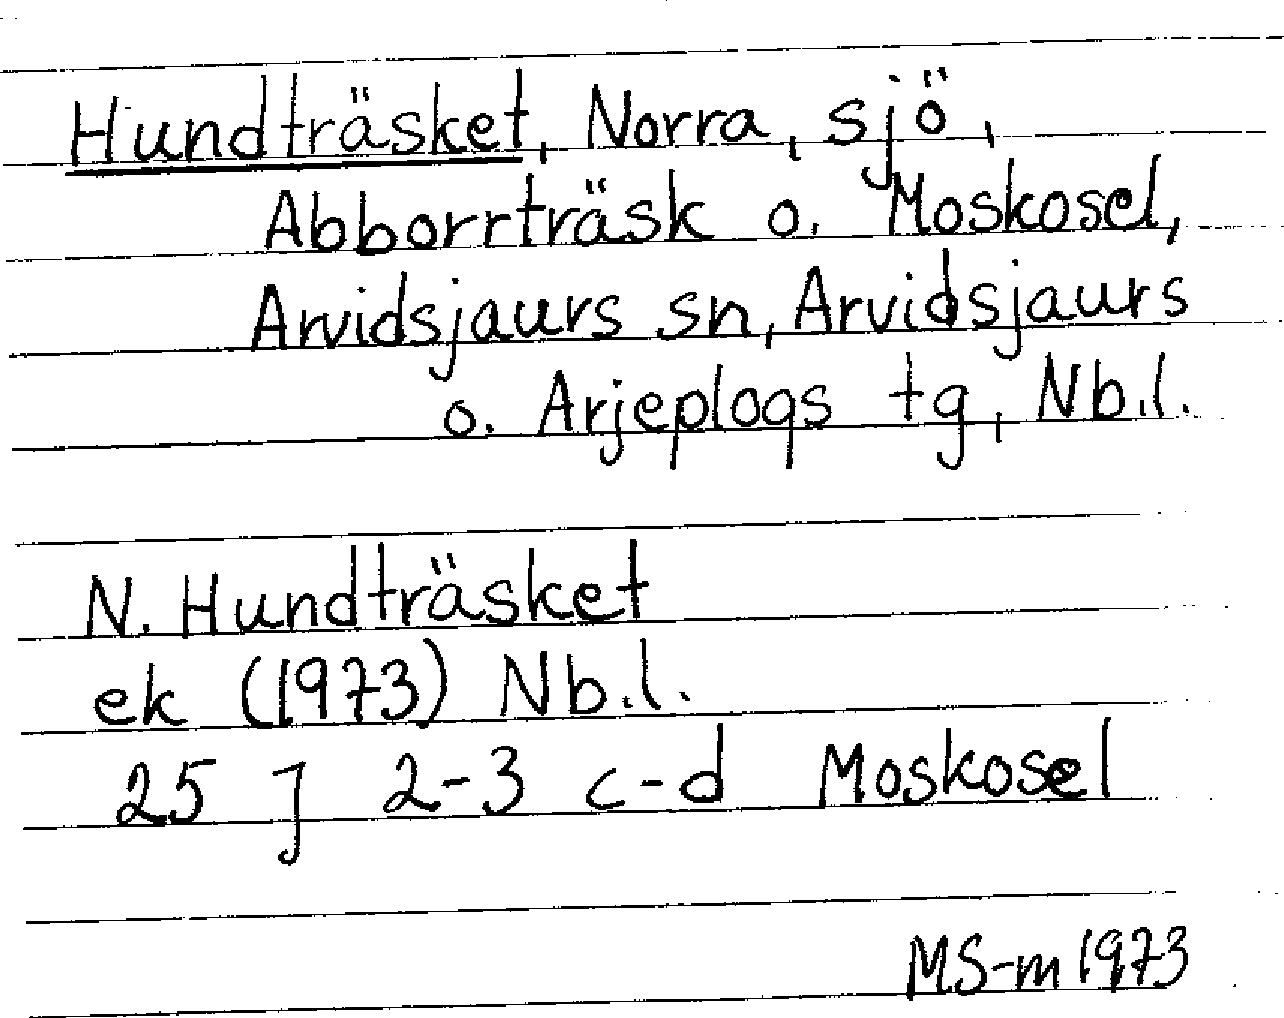 Hundträsket, Norra, sjö,
Abborrträsk o. Moskosel,
Arvidsjaurs sn, Arvidsjaurs
o. Arjeplogs tg, Nb.l.
N. Hundträsket
ek (1973) Nb.l.
25 J 2-3 c-d Moskosel
MS-m 1973